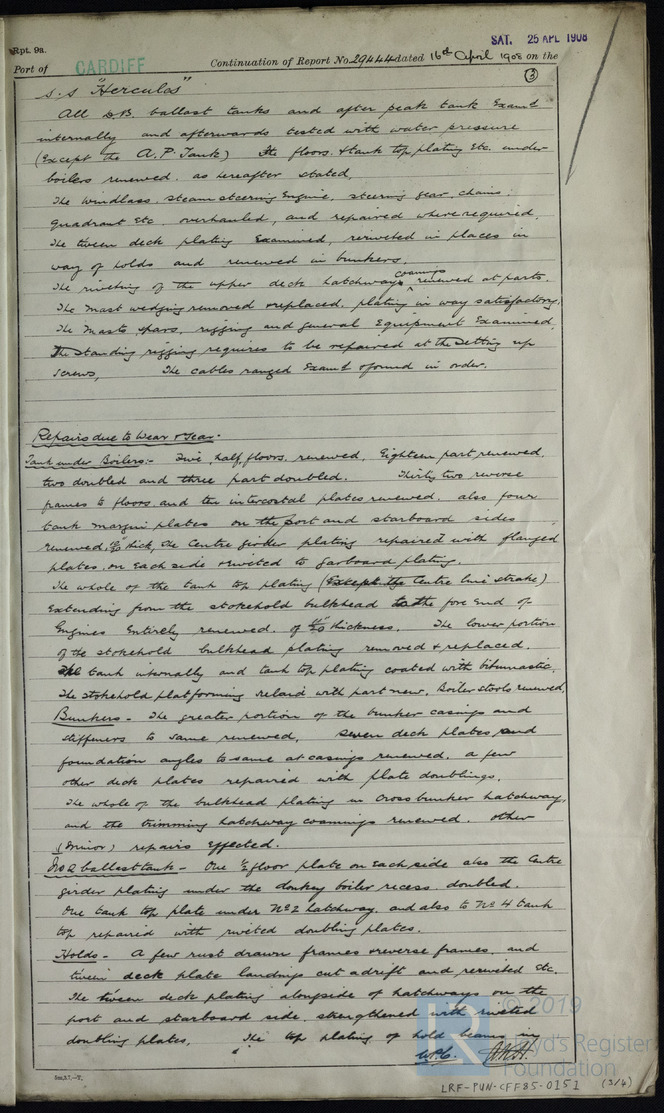 SAT. 25 APL 1908
Rpt. 9a.
Port of CARDIFF Continuation of Report No. 29444 dated 16th April 1908 on the
(3)
s.s "Hercules"
All D.B. ballast tanks and after peak tank Examd
internally and afterwards tested with water pressure
(Except the A.P. Tank) The floors & tank top plating Etc. under
boilers renewed. as hereafter stated.
The windlass, steam steering Engine, steering gear, chains,
quadrant Etc overhauled, and repaired where required.
The tween deck plating Examined, reriveted in places in
way of holds and renewed in bunkers.
The riveting of the upper deck hatchways coamings renewed at parts.
The mast wedging removed & replaced, plating in way satisfactory.
The Masts, spars, rigging and general Equipment Examined.
The standing rigging requires to be repaired at the setting up
screws, The cables ranged Examd & found in order.
Repairs due to Wear & Tear.
Tank under Boilers:- Five half floors, renewed, Eighteen part renewed,
two doubled and three part doubled. Thirty two reverse
frames to floors and ten intercostal plates renewed, also four
tank margin plates on the port and starboard sides
renewed, thick, the Centre girder plating repaired with flanged
plates, on Each side & riveted to garboard plating.
The whole of the tank top plating (Except the Centre line strake)
Extending from the stokehold bulkhead to the fore End of
Engines Entirely renewed. of thickness. The lower portion
of the stokehold bulkhead plating removed & replaced.
The tank internally and tank top plating coated with bitumastic.
The Stokehold platforming relaid with part new. Boiler stools renewed.
Bunkers - The greater portion of the bunker casings and
stiffeners to same renewed, seven deck plates and
foundation angles to same at casings renewed. a few
other deck plates repaired with plate doublings.
The whole of the bulkhead plating in Cross bunker hatchway,
and the trimming hatchway coamings renewed. other
(Minor) repairs Effected.
No 2 ballast tank - One ½ floor plate on Each side also the Centre
girder plating under the donkey boiler recess doubled.
One tank top plate under No 2 hatchway, and also to No 4 tank
top repaired with riveted doubling plates.
Holds - A few rust drawn frames & reverse frames, and
tween deck plate landings cut adrift and reriveted Etc.
The tween deck plating alongside of hatchways on the
port and starboard side, strengthened with riveted
doubling plates, The top plating of hold beams in
© 2019
LR
Lloyd's Register
Foundation
LRF-PUN-CFF85-0151 (3/4)